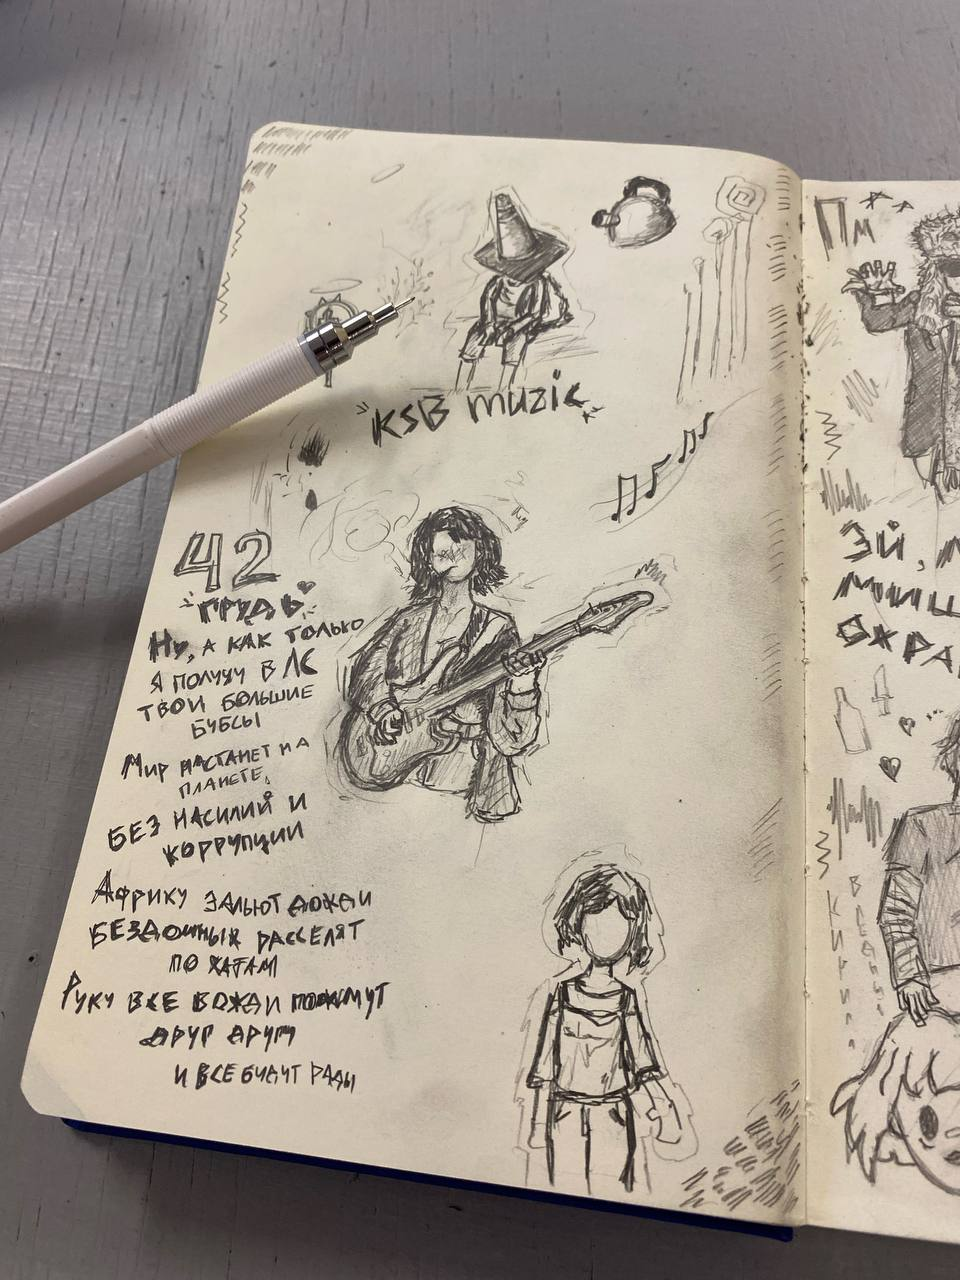 KSB muzic
42
ГРУДЬ
Ну, А КАК ТОЛЬКО
Я ПОЛУЧУ В ЛС
ТВОИ БОЛЬШИЕ
БУБСЫ
Мир НАСТАНЕТ НА
ПЛАНЕТЕ,
БЕЗ НАСИЛИЙ И
КОРРУПЦИИ
Африку ЗАЛЬЮТ ДОЖДИ
БЕЗДОМНЫХ РАССЕЛЯТ
ПО ХАТАМ
Руку ВСЕ ВОЖДИ ПОЖМУТ
ДРУГ ДРУГУ
И ВСЕ БУДУТ РАДЫ
Пм
ЭЙ,